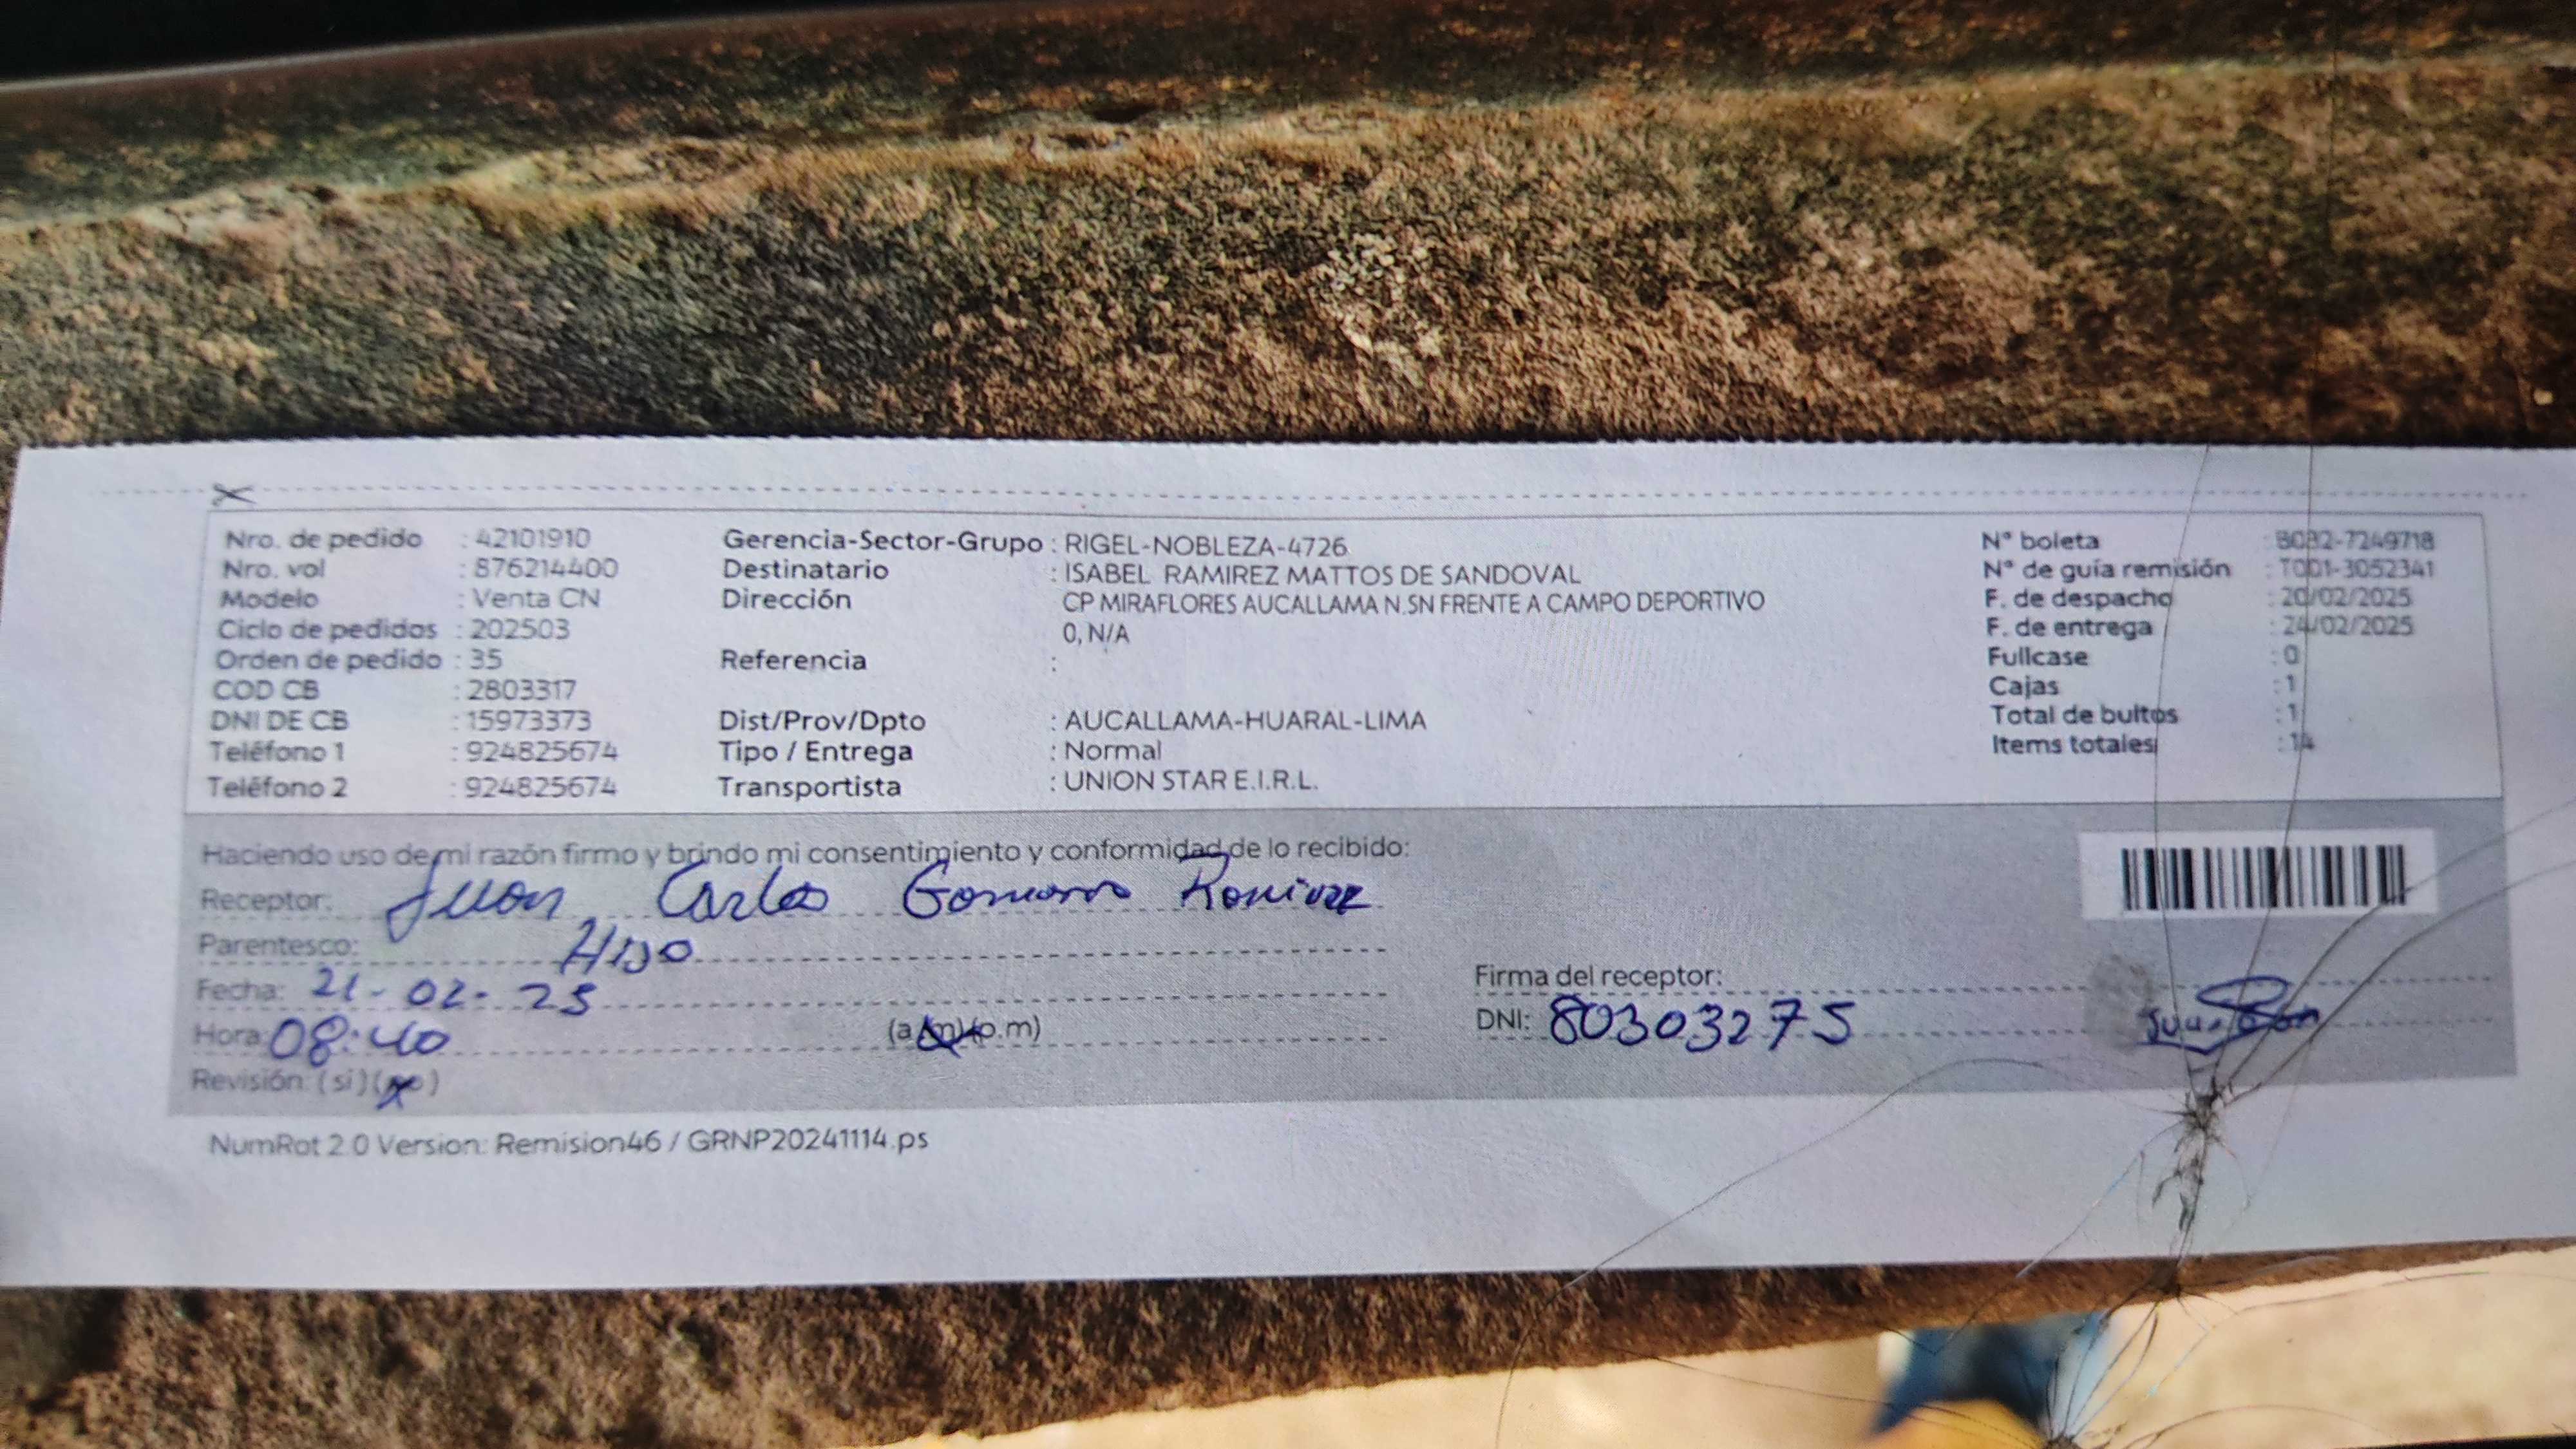 Nro. de pedido : 42101910
Nro. vol : 876214400
Modelo : Venta CN
Ciclo de pedidos : 202503
Orden de pedido : 35
COD CB : 2803317
DNI DE CB : 15973373
Teléfono 1 : 924825674
Teléfono 2 : 924825674
Gerencia-Sector-Grupo : RIGEL-NOBLEZA-4726
Destinatario : ISABEL RAMIREZ MATTOS DE SANDOVAL
Dirección CP MIRAFLORES AUCALLAMA N.SN FRENTE A CAMPO DEPORTIVO
0, N/A
Referencia :
Dist/Prov/Dpto : AUCALLAMA-HUARAL-LIMA
Tipo / Entrega : Normal
Transportista : UNION STAR E.I.R.L.
N° boleta : B082-7249718
N° de guía remisión : T001-3052341
F. de despacho : 20/02/2025
F. de entrega : 24/02/2025
Fullcase : 0
Cajas : 1
Total de bultos : 1
Items totales : 14
Haciendo uso de mi razón firmo y brindo mi consentimiento y conformidad de lo recibido:
Receptor: Juan Carlos Ramirez
Parentesco: Hijo
Fecha: 21-02-25
Hora: 08:40 (a.m) (p.m)
Revisión: (si) (no)
Firma del receptor:
DNI: 80303275
NumRot 2.0 Version: Remision46 / GRNP20241114.ps